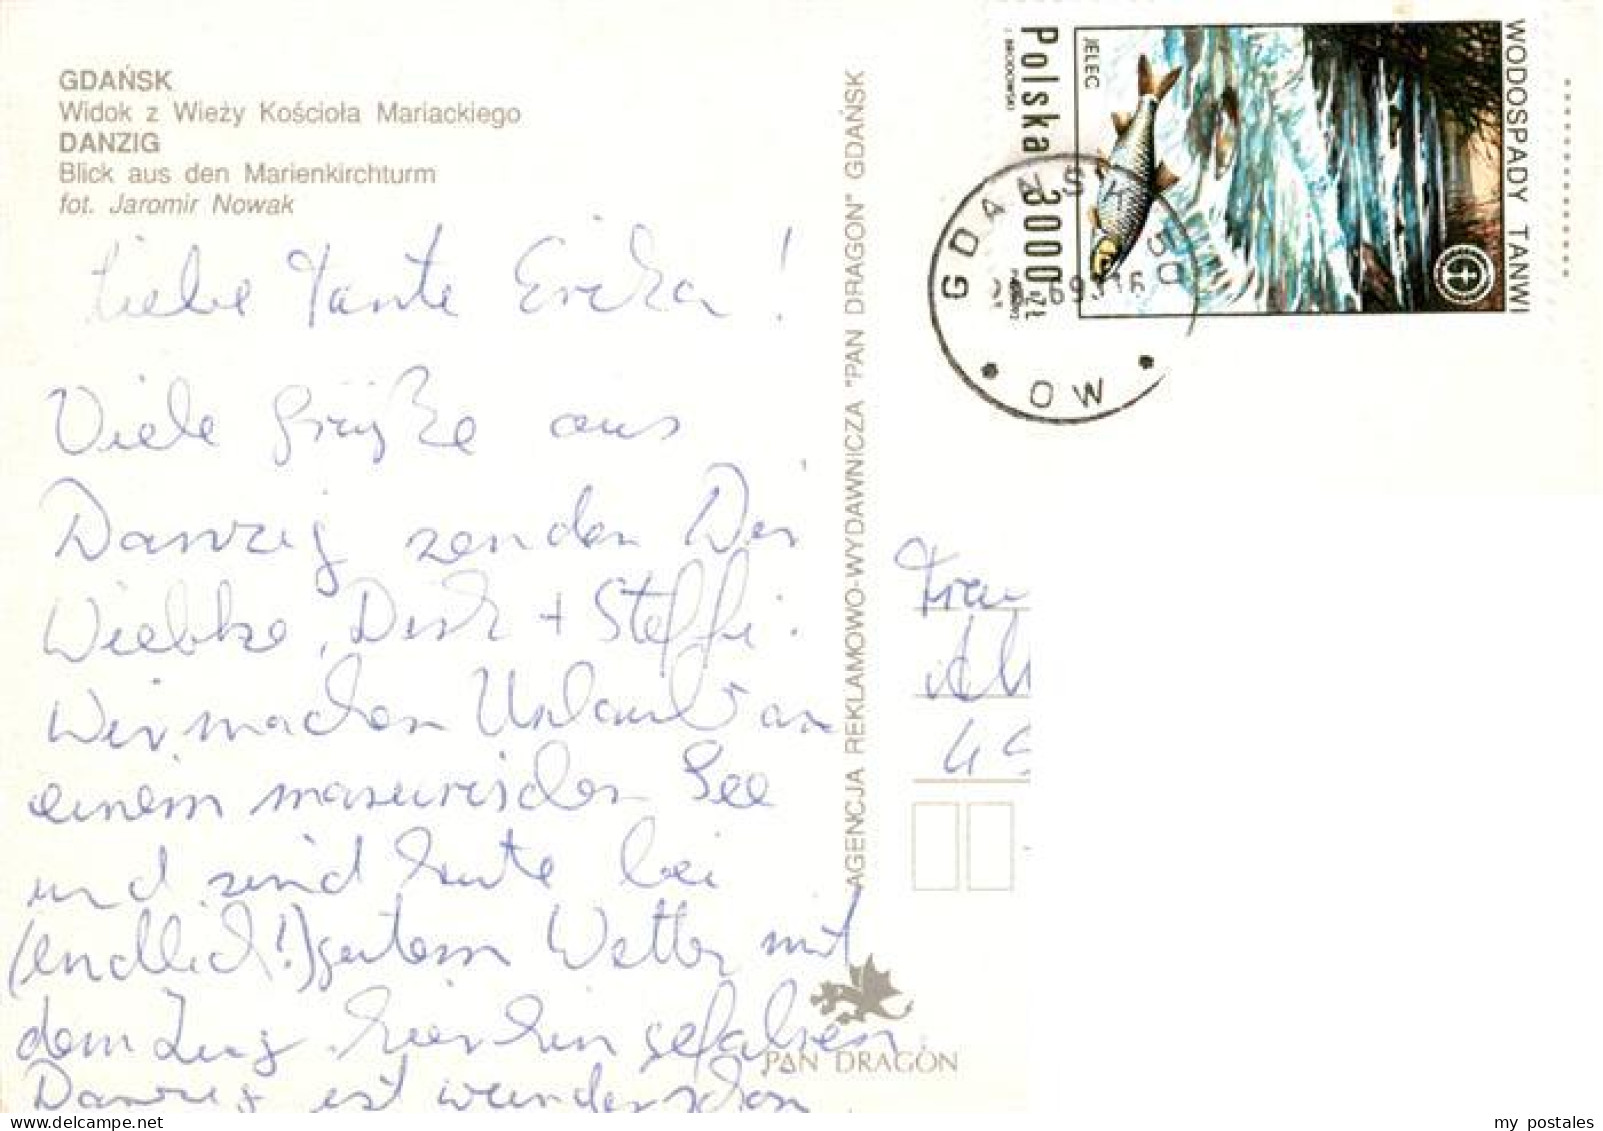 GDAŃSK
Widok z Wieży Kościoła Mariackiego
DANZIG
Blick aus den Marienkirchturm
fot. Jaromir Nowak
Liebe Tante Ericka!
Viele Grüße aus
Danzig senden Dir
Wiebke, Dirk + Steffi.
Wir machen Urlaub an
einem masurischen See
und sind heute bei
(endlich!) gutem Wetter mit
dem Zug hierhin gefahren
Danzig ist wunderschön
AGENCJA REKLAMOWO-WYDAWNICZA "PAN DRAGON" GDAŃSK
PAN DRAGON
WODOSPADY TANWI
JELEC
Polska 3000 zł
GDAŃSK 50
OW
Frau
my postales